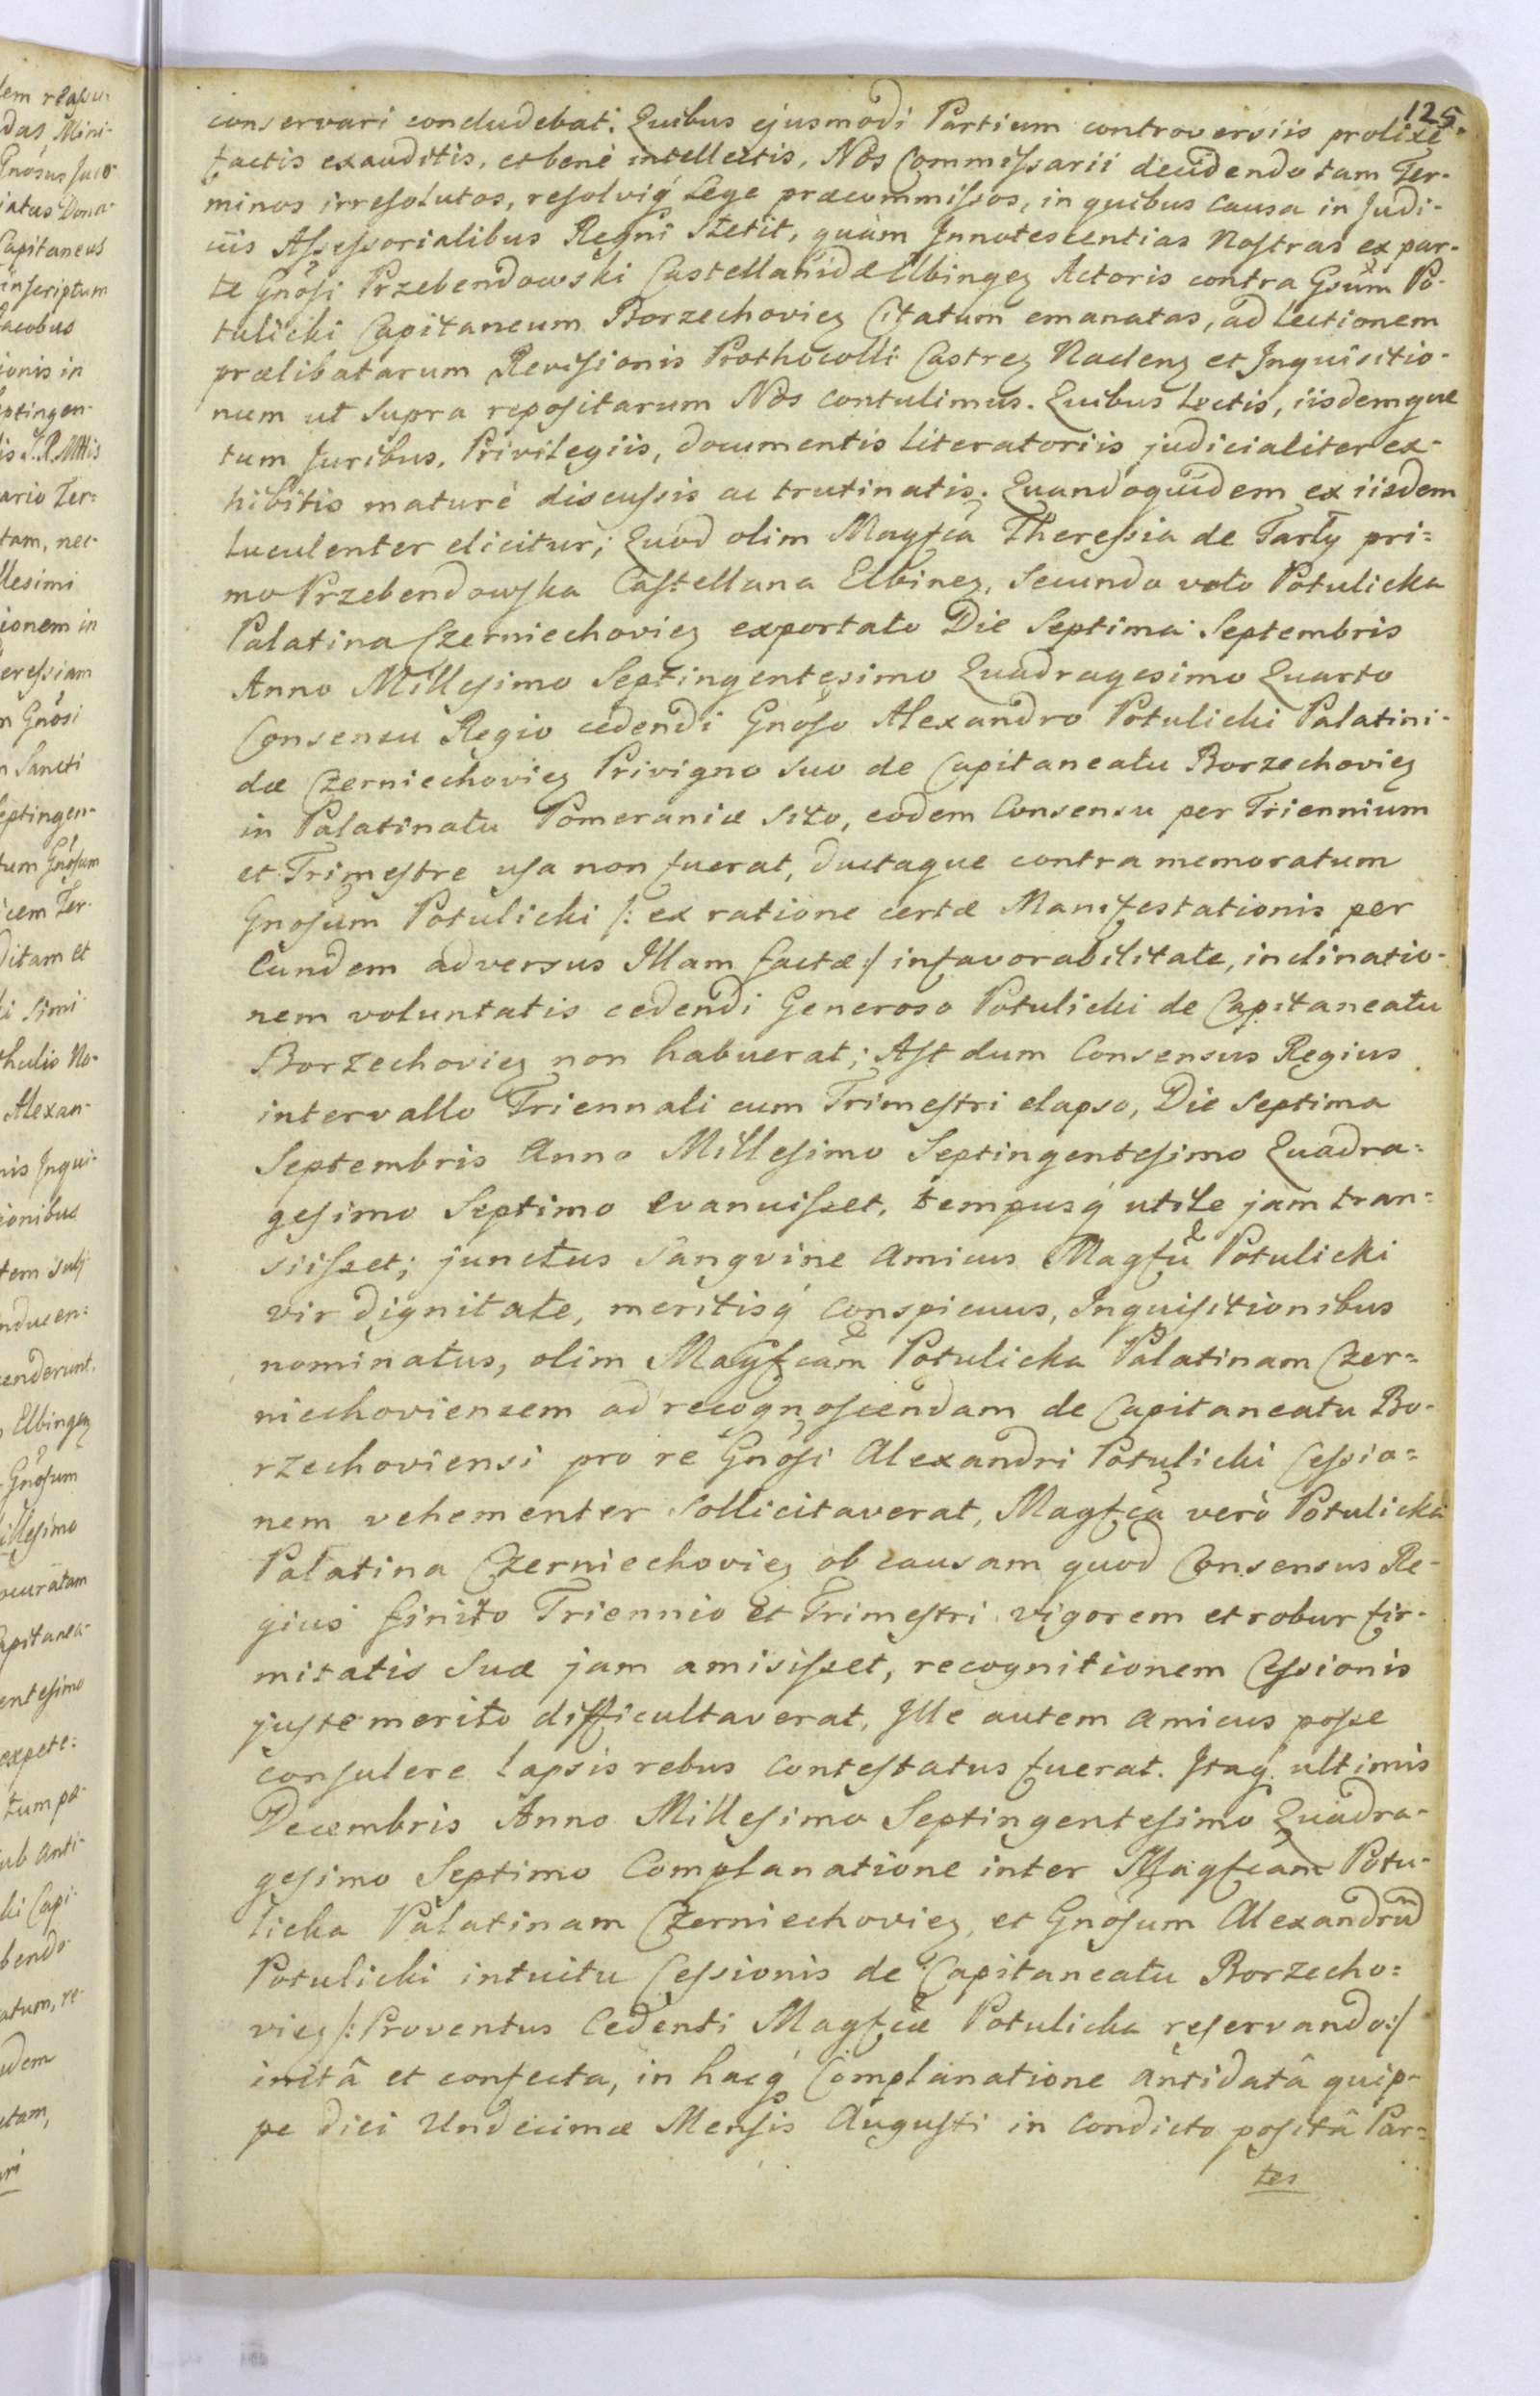 125.
conservari concludebat. Quibus ejusmodi Partium controversiis prolixè
factis exauditis, et benè intellectis, Nos Commissarii decidendo tam Ter-
minos irresolutos, resolviq́ Lege præcommissos, in quibus Causa in Judi-
ciis Assessorialibus Regni Stetit, quàm Innotescentias Nostras ex par-
te Gnosi Przebendowski Castellanidæ Elbingez Actoris contra Gsum Po-
tulicki Capitaneum Borzechoviez Citatum emanatas, ad Lectionem
prælibatarum Revisionis Prothocolli Castrez Nadenz et Inquisitio-
num ut supra repositarum Nos contulimus. Quibus Lectis, iisdemque
tum Juribus, Privilegiis, documentis Literatoriis judicialiter ex-
hibitis maturè discussis ac trutinatis. Quandoquidem ex iisdem
Luculenter elicitur; Quod olim Magfca Theressia de Tarły pri-
mo Przebendowska Castellana Elbinez, Secundo voto Potulicka
Palatina Czerniechoviez exportato Die Septima Septembris
Anno Millesimo Septingentesimo Quadragesimo Quarto
Consensu Regio cedendi Gnoso Alexandro Potulicki Palatini-
dæ Czerniechoviez Privigno suo de Capitaneatu Borzechoviez
in Palatinatu Pomeraniæ sito, eodem Consensu per Triennium
et Trimestre usa non fuerat, ductaque contra memoratum
Gnosum Potulicki /: ex ratione certæ Manifestationis per
Eundem adversus Illam factæ :/ infavorabilitate, inclinatio-
nem voluntatis cedendi Generoso Potulicki de Capitaneatu
Borzechoviez non habuerat; Ast dum Consensus Regius
intervallo Triennali cum Trimestri elapso, Die Septima
Septembris Anno Millesimo Septingentesimo Quadra=
gesimo Septimo evanuisset, tempusq́ utile jam tran=
siisset; junctus sangvine Amicus Magfu Potulicki
vir dignitate, meritisq́ conspicuus, Inquisitionibus
nominatus, olim Magfcam Potulicka Palatinam Czer=
niechoviensem ad recognoscendam de Capitaneatu Bo-
rzechoviensi pro re Gnosi Alexandri Potulicki Cessio=
nem vehementer sollicitaverat, Magfca verò Potulicka
Palatina Czerniechoviez ob causam quod Consensus Re-
gius finito Triennio et Trimestri vigorem et robur fir-
mitatis suæ jam amisisset, recognitionem Cessionis
juste merito difficultaverat, Ille autem Amicus posse
consulere lapsis rebus contestatus fuerat. Itaq́. ultimis
Decembris Anno Millesimo Septingentesimo Quadra-
gesimo Septimo Complanatione inter Magfcam Potu-
licka Palatinam Czerniechoviez, et Gnosum Alexandrum
Potulicki intuitu Cessionis de Capitaneatu Borzecho=
viez /: Proventus Cedenti Magfcæ Potulicka reservando :/
initâ et confecta, in hacq́ Complanatione antidatâ quip-
pe diei Undecimæ Mensis Augusti in Condicto positâ Par=
tes